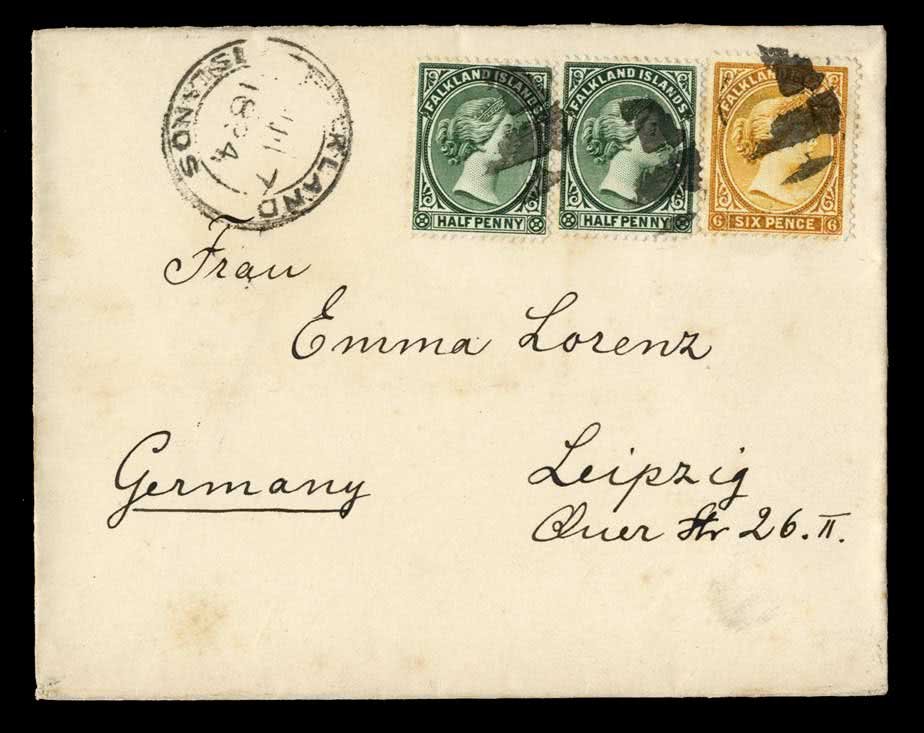 FALKLAND ISLANDS
1894
FALKLAND ISLANDS
HALF PENNY
FALKLAND ISLANDS
HALF PENNY
FALKLAND
6 SIX PENCE 6
Frau
Emma Lorenz
Germany
Leipzig
Quer Str 26. II.